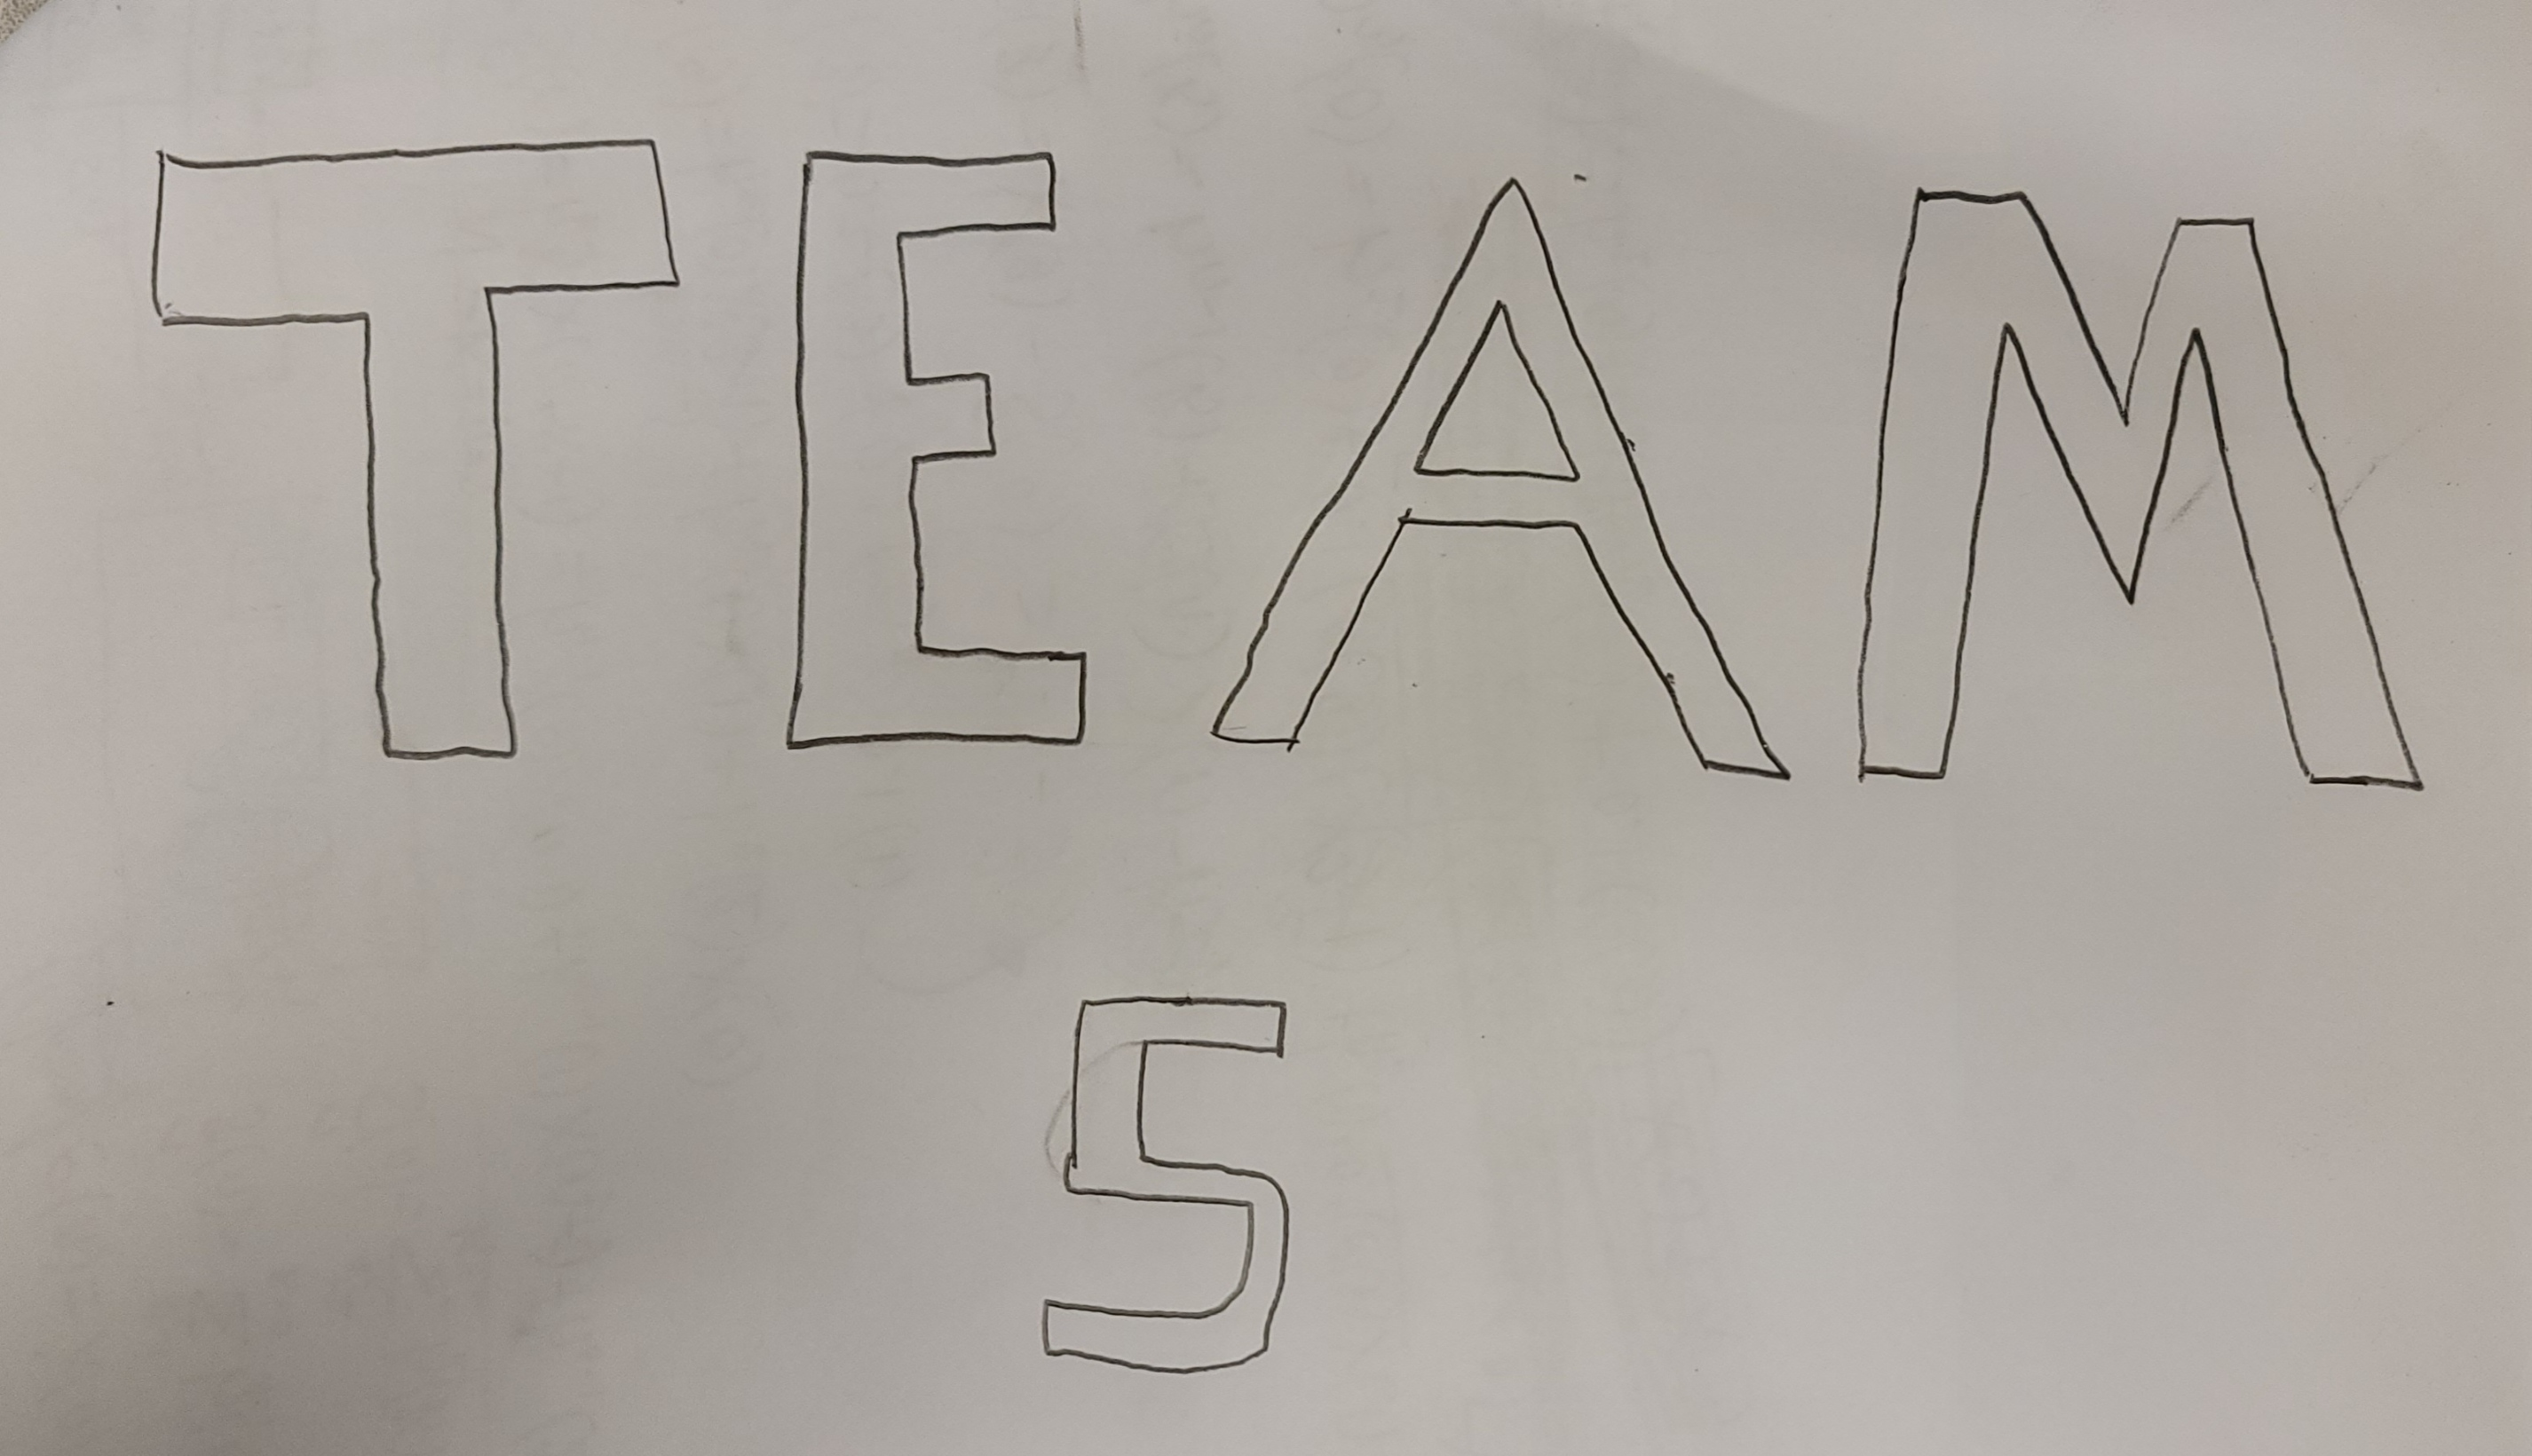 TEAM
5